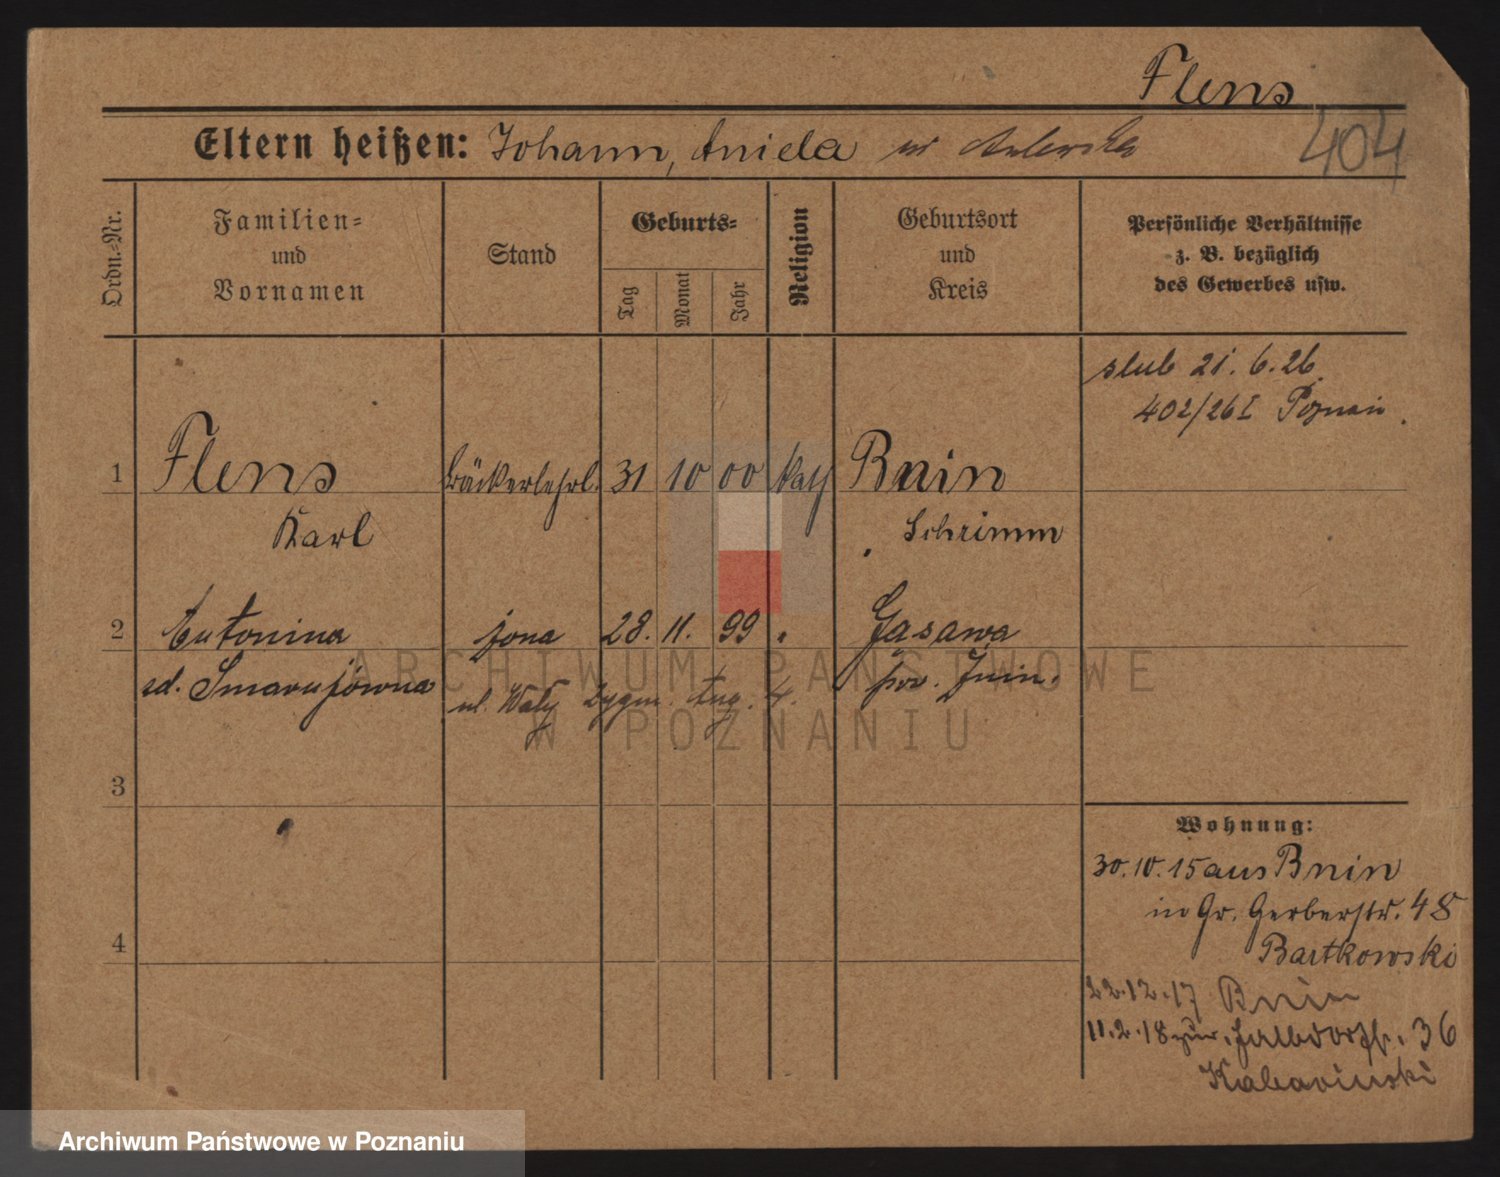 Flens
404
Eltern heißen: Johann, Aniela
Ordn.-Nr.
Familien- und Vornamen
Stand
Geburts-
Tag
Monat
Jahr
Religion
Geburtsort und Kreis
Persönliche Verhältnisse
z. B. bezüglich
des Gewerbes usw.
slub 21. 6. 26.
402/26 I Poznań.
1 Flens Bäckerlehrl. 31 10 00 kath Bnin
Karl Schrimm
2 Antonina żona 28. 11. 99 " Gąsawa
ul. Wały Zygm. Aug. 4. pow. Żnin.
3
4
Wohnung:
30.10.15 aus Bnin
in Gr. Gerberstr. 48
Bartkowski
22.12.17 Bnin
11.2.18 zur. Halbdorfstr. 36
ARCHIWUM PAŃSTWOWE
W POZNANIU
Archiwum Państwowe w Poznaniu